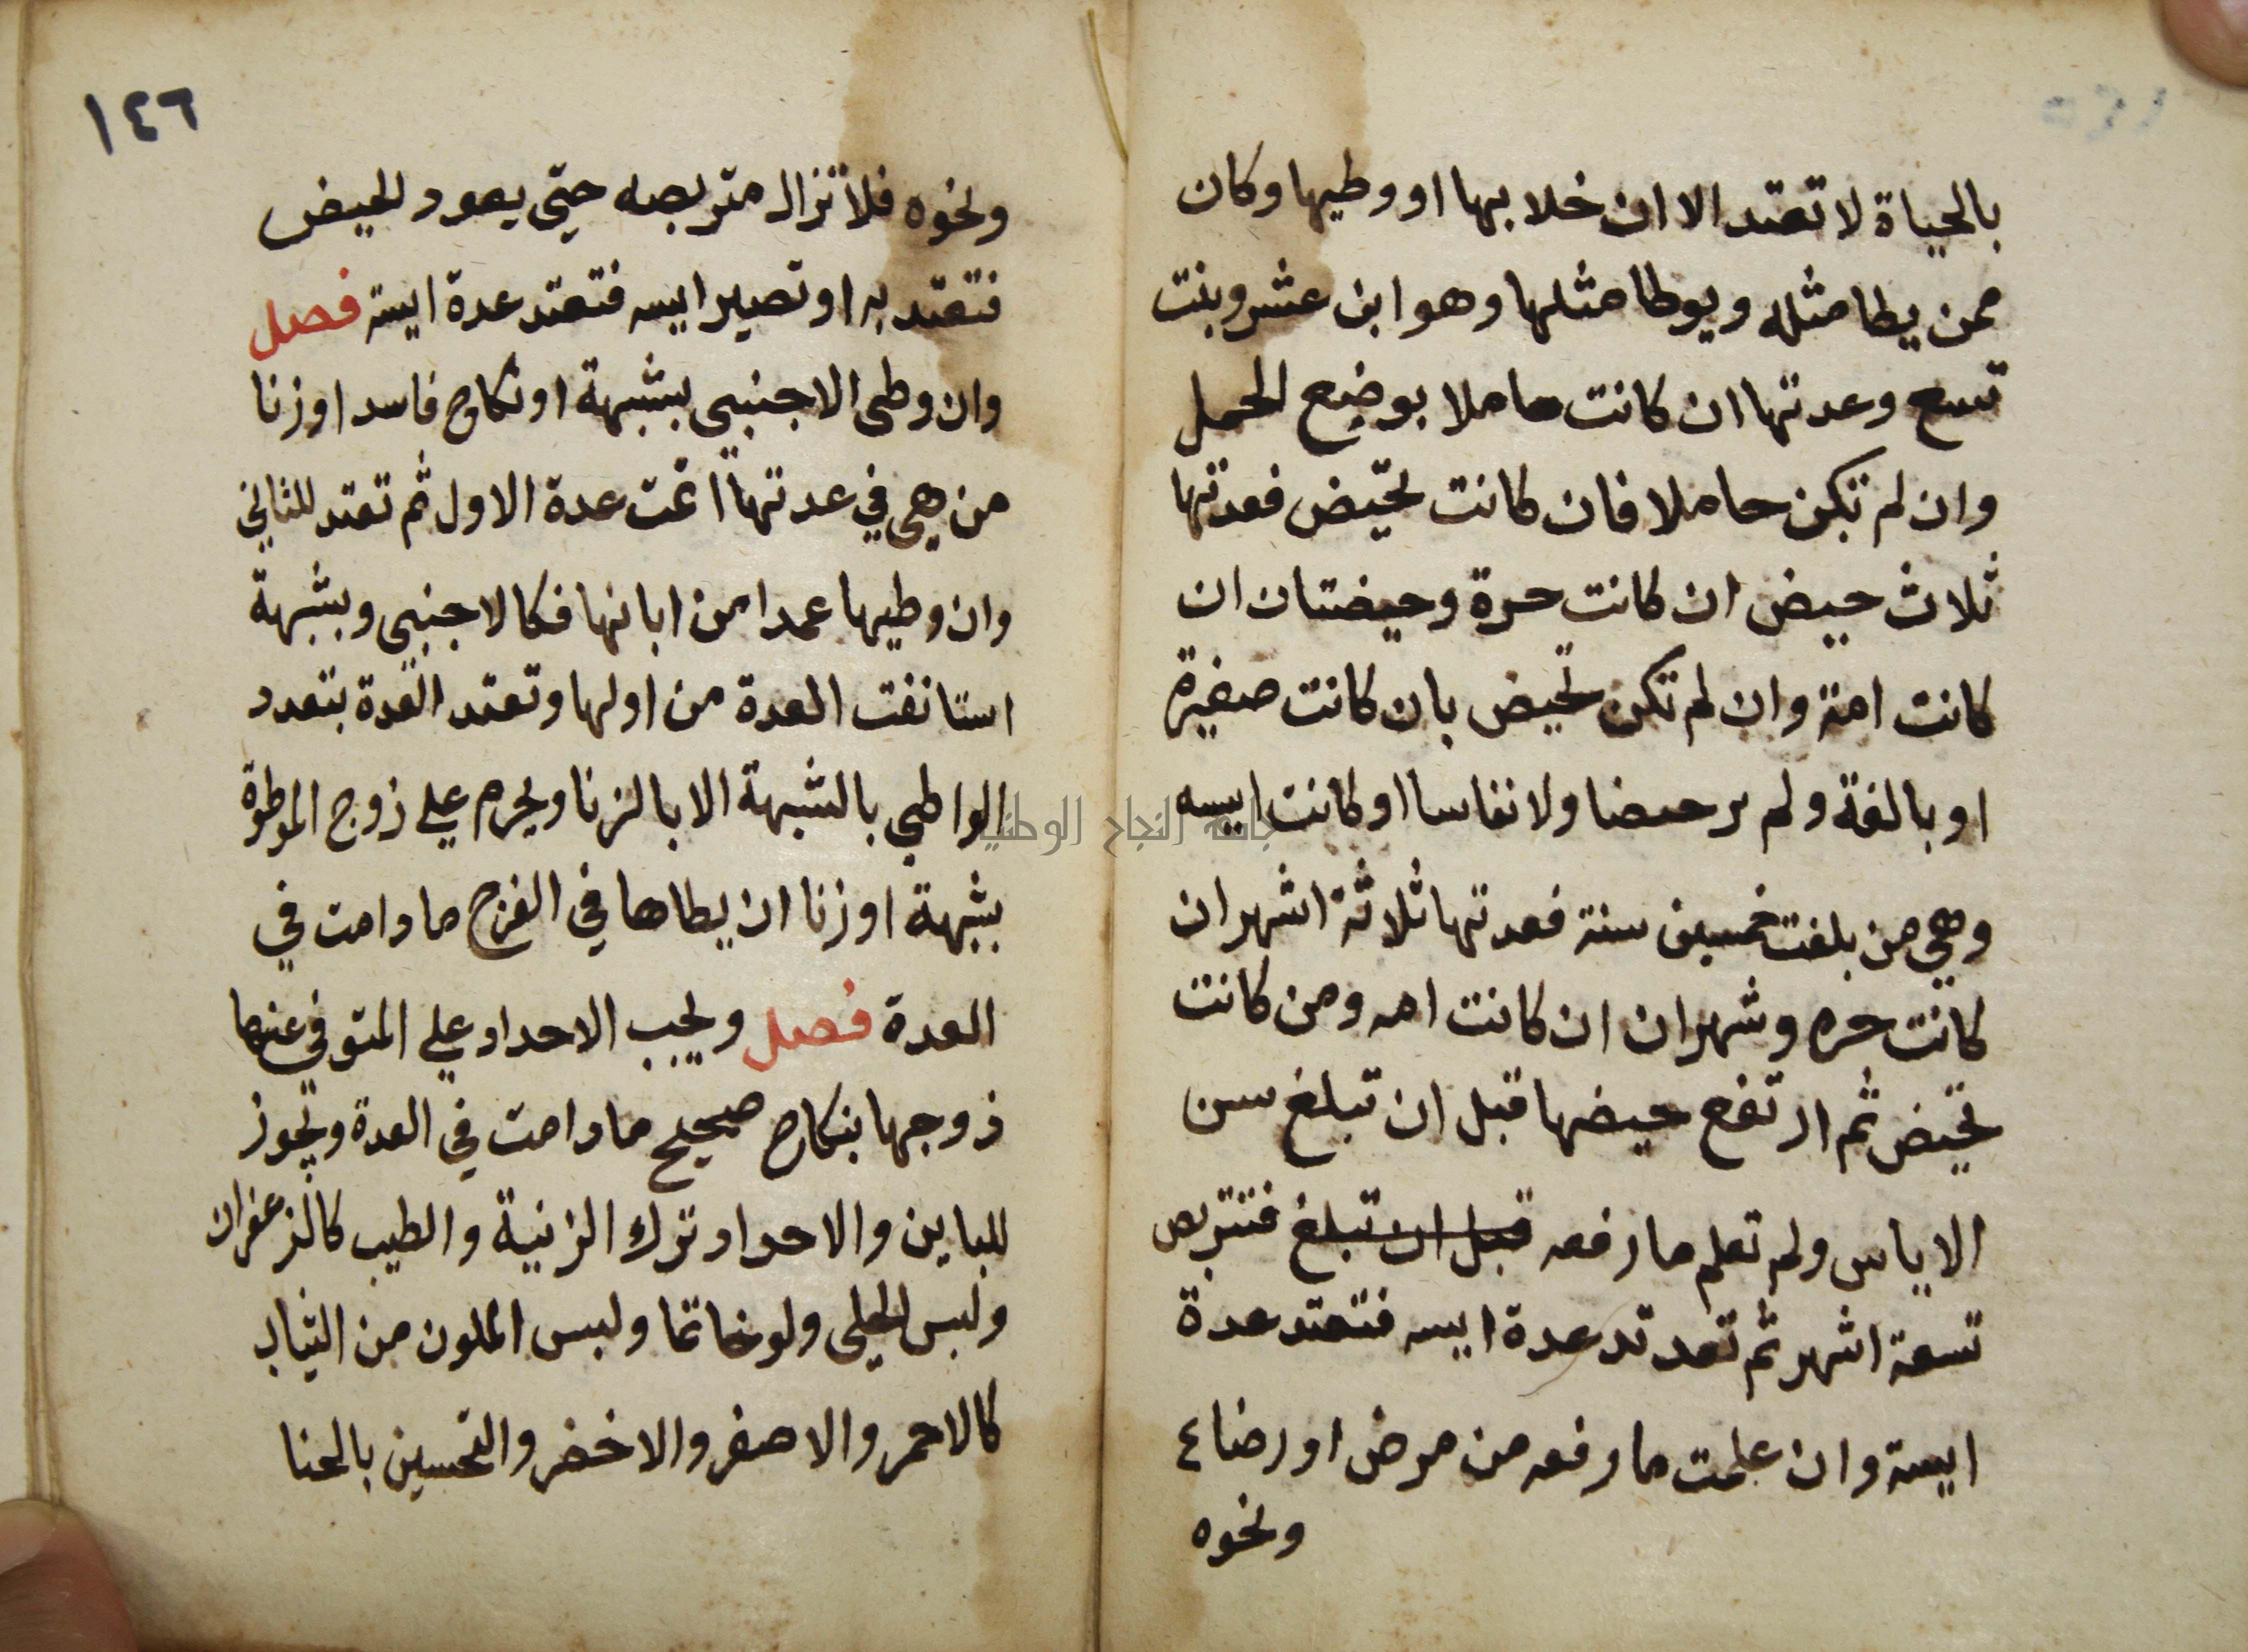 بالحياة لا تعتد الا ان خلا بها او وطيها وكان
ممن يطا مثله ويوطا مثلها وهو ابن عشر وبنت
تسع وعدتها ان كانت حاملا بوضع الحمل
وان لم تكن حاملا فان كانت تحيض فعدتها
ثلاث حيض ان كانت حرة وحيضتان ان
كانت امة وان لم تكن تحيض بان كانت صغيرة
او بالغة ولم تر حيضا ولا نفاسا او كانت ايسه
وهي من بلغت خمسين سنة فعدتها ثلاثة اشهر ان
كانت حره وشهران ان كانت امه ومن كانت
تحيض ثم ارتفع حيضها قبل ان تبلغ سن
الاياس ولم تعلم ما رفعه قبل ان تبلغ فتتربص
تسعة اشهر ثم تعد تد عدة ايسه فتعتد عدة
ايسة وان علمت ما رفعه من مرض او رضاع
ونحوه
١٤٦
ونحوه فلا تزال متربصه حتي يعود الحيض
فتعتد به او تصير ايسه فتعتد عدة ايسة فصل
وان وطى الاجنبي بشبهة او نكاح فاسد او زنا
من هي في عدتها اتمت عدة الاول ثم تعتد للثاني
وان وطيها عمدا من ابانها فكالاجنبي وبشبهة
استانفت العدة من اولها وتعتد العدة بتعدد
الواطي بالشبهة الا بالزنا ويحرم علي زوج الموطوة
بشبهة او زنا ان يطاها في الفرج ما دامت في
العدة فصل ويجب الاحداد علي المتوفي عنها
زوجها بنكاح صحيح ما دامت في العدة ويجوز
للباين والاحداد ترك الزنية والطيب كالزعفران
ولبس الحلي ولو خاتما ولبس الملون من الثياب
كالاحمر والاصفر والاخضر والتحسين بالحنا
جامعة النجاح الوطنية